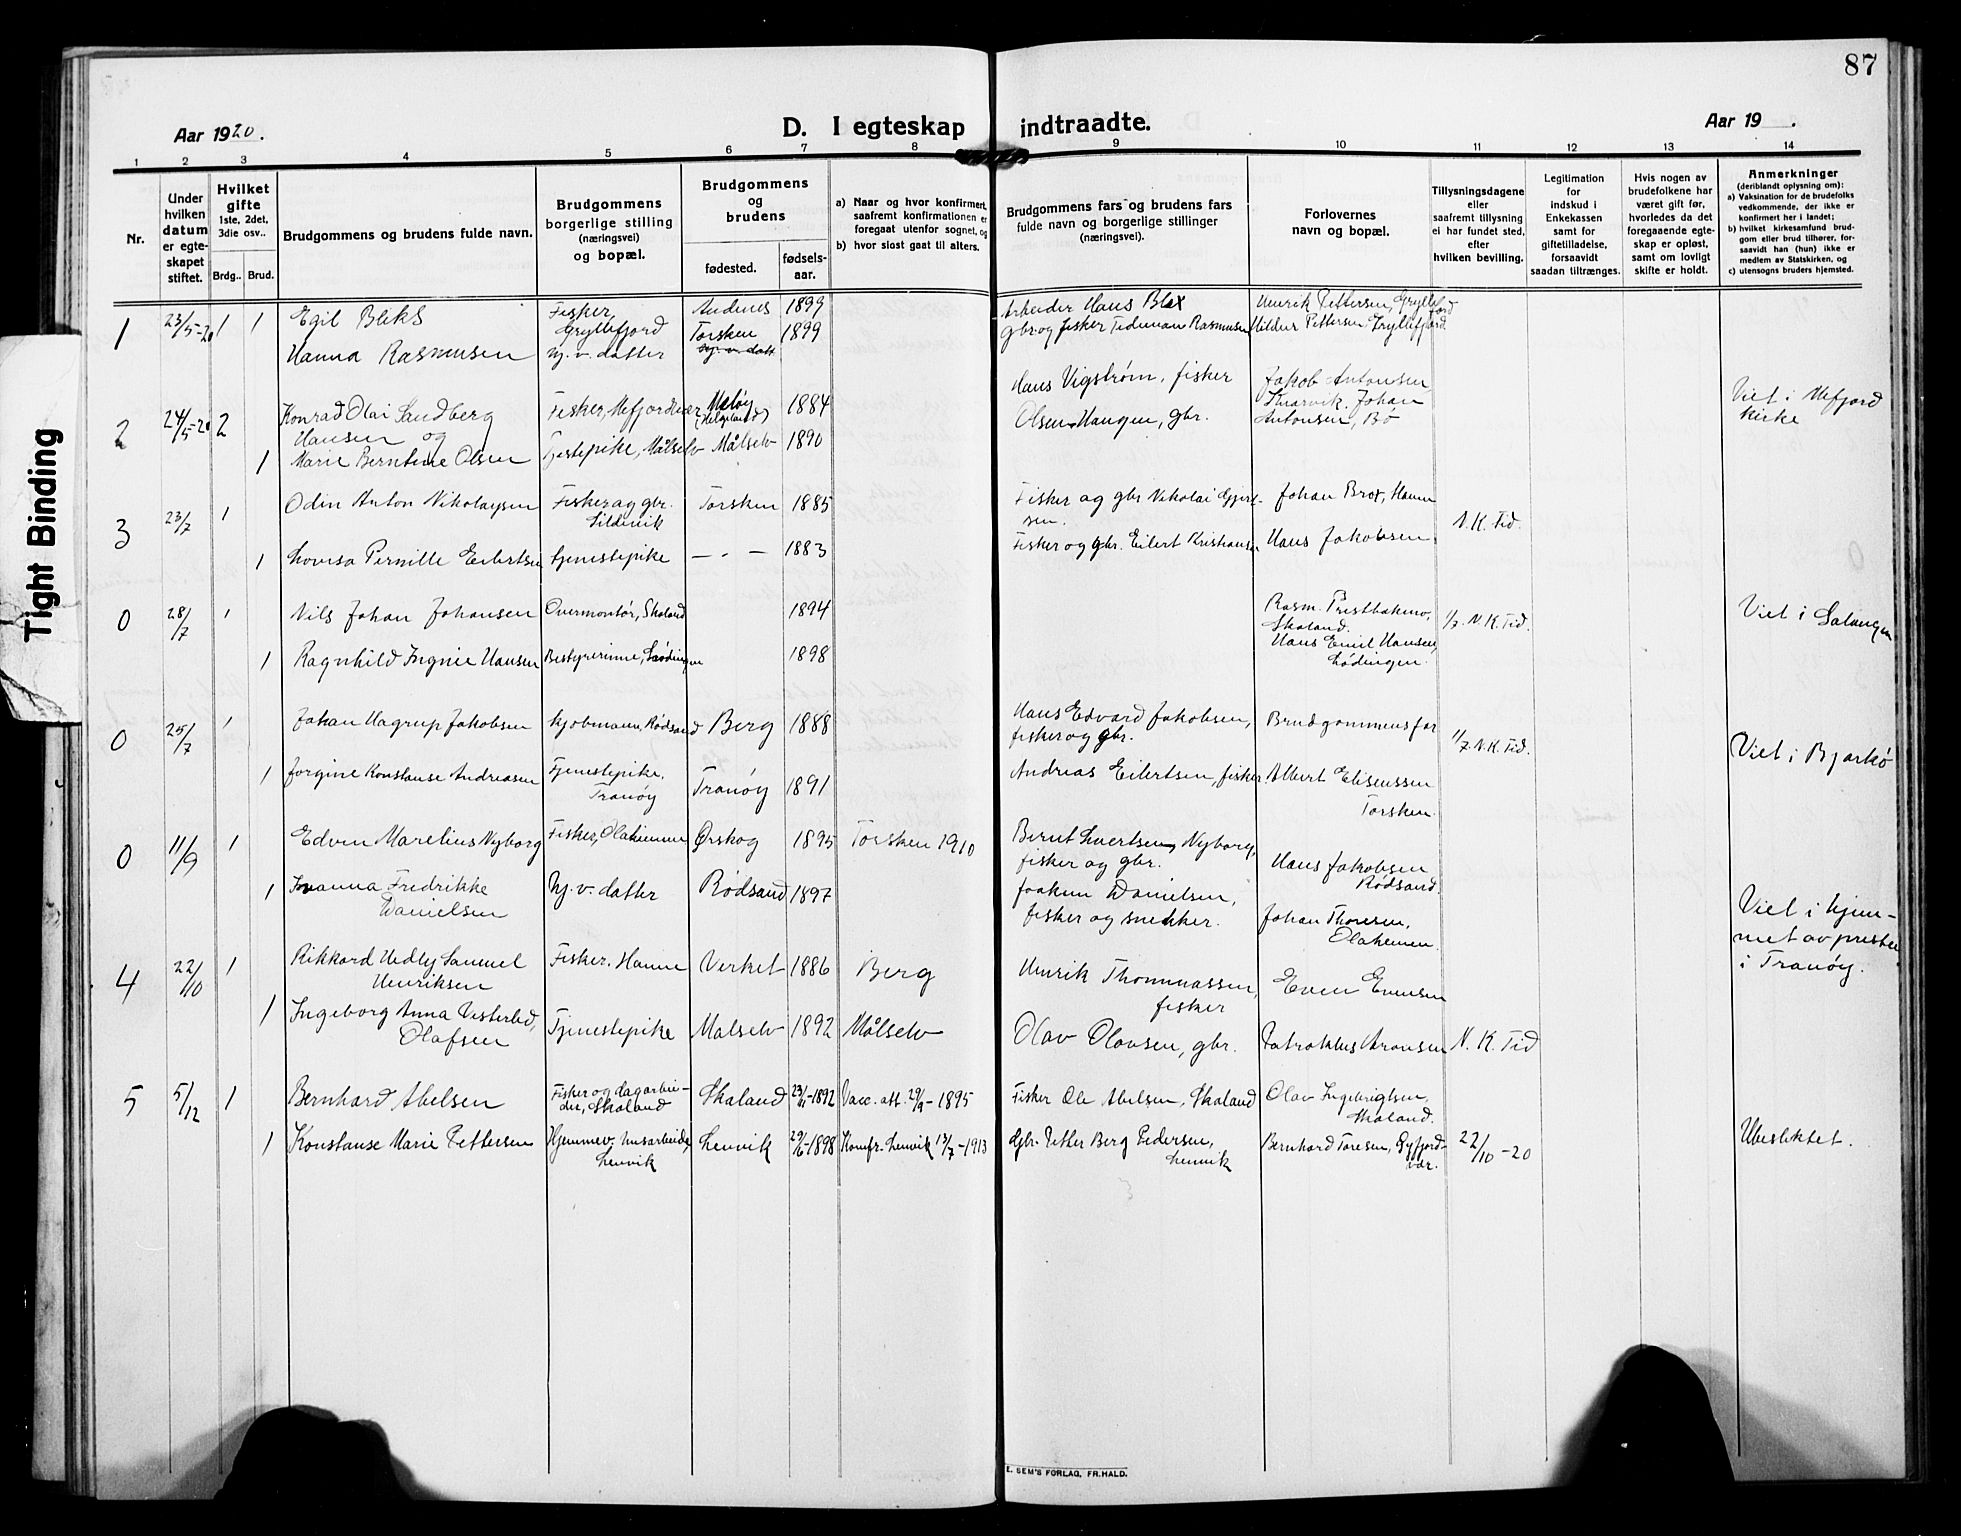 87
Aar 1920.
D. I egteskap indtraadte.
Aar 19 .
1 2 3 4 5 6 7 8 9 10 11 12 13 14
Nr.
Under hvilken datum er egte-skapet stiftet.
Hvilket gifte
1ste, 2det, 3die osv..
Brdg.. Brud.
Brudgommens og brudens fulde navn.
Brudgommens borgerlige stilling (næringsvei) og bopæl.
Brudgommens og brudens
fødested.
fødsels-aar.
a) Naar og hvor konfirmert, saafremt konfirmationen er foregaat utenfor sognet, og
b) hvor sidst gaat til alters.
Brudgommens fars og brudens fars fulde navn og borgerlige stillinger (næringsvei).
Forlovernes navn og bopæl.
Tillysningsdagene eller saafremt tillysning ei har fundet sted, efter hvilken bevilling.
Legitimation for indskud i Enkekassen samt for giftetilladelse, forsaavidt saadan tiltrænges.
Hvis nogen av brudefolkene har været gift før, hvorledes da det foregaaende egte-skap er opløst, samt om lovligt skifte er holdt.
Anmerkninger
(deriblandt oplysning om):
a) Vaksination for de brudefolks vedkommende, der ikke er konfirmert her i landet;
b) hvilket kirkesamfund brud-gom eller brud tilhører, for-saavidt han (hun) ikke er medlem av Statskirken, og
c) utensogns bruders hjemsted.
Tight Binding
1 23/5-20 1 1 Egil Bliks Fisker, Gryllefjord Andenes 1899 Arbeider Hans Blix Henrik Pettersen, Gryllefjord
Hanna Rasmusen hj. v. datter Torsken 1899 gbr og fisker Tideman Rasmusen Hildur Pettersen Gryllefjord
2 24/5-20 2 Konrad Olai Sandberg Hansen og Fisker, Mefjordvær Meløy (Helgeland) 1884 Hans Vigstrøm, fisker Jakob Antonsen
1 Marie Berntine Olsen Tjestepike, Målselv Målselv 1890 Olsen Haugen, gbr. Johan Antonsen, Bø
Viet i Mefjord kirke
3 23/7 1 Odin Anton Nikolaysen Fisker og gbr. Torsken 1885 Fisker og gbr Nikolai Gjert-sen. Johan Brox, Hamn
1 Lovisa Pernille Eilertsen tjenestepike — " — 1883 Fisker og gbr. Eilert Kristiansen Hans Jakobsen. N. K. Tid.
0 28/7 1 Nils Johan Johansen Overmontør, Skaland 1894 Rasm. Prestbakmo, Skaland. 1/7. N. K. Tid. Viet i Salangen
1 Ragnhild Ingrie Hansen Bestyrerinne, Lødingen 1898 Hans Emil Hansen, Lødingen.
0 25/7 1 Johan Hagrup Jakobsen kjøbmann, Rødsand Berg 1888 Hans Edvard Jakobsen, fisker og gbr. Brudgommens far 1/7. N. K. Tid. Viet i Bjarkø
1 Jorgine Konstanse Andreasen Tjenestepike, Tranøy Tranøy 1891 Andreas Eilertsen, fisker Albert Eliseussen Torsken.
0 11/9 1 Edvin Marelius Nyborg Fisker, Olaheimen Ørskog 1895 Torsken 1910 Bernt Nyborg, fisker og gbr. Hans Jakobsen Rødsand.
1 Ivanna Fredrikke Danielsen Hj. v. datter Rødsand 1897 Joakim Danielsen, fisker og snekker. Johan Thoresen, Olaheimen.
Viet i hjem-met av presten i Tranøy.
4 22/10 1 Rikkard Hedly Samuel Henriksen Fisker. Hamn Verket 1886 Berg Henrik Thommassen, fisker Even Evensen
1 Ingeborg Anna Vesterlid, Olafsen Tjenestepike Målselv 1892 Målselv Olav Olavsen, gbr. Patroklus Aronsen N. K. Tid
5 5/12 1 Bernhard Abelsen Fisker og dagarbei-der, Skaland Skaland 23/11-1892 Vacc. att. 29/9-1895 Fisker Ole Abelsen, Skaland Olav Ingebrigtsen, Skaland.
1 Konstanse Marie Pettersen Hjemmev. husarbeide, Lenvik Lenvik 29/6-1898 Komfr. Lenvik 13/7-1913 Gbr. Petter Berg Pedersen, Lenvik Bernhard Toresen, Gryfjord-vær. 22/10-20 Ubeslektet.
E. SEM'S FORLAG, FR.HALD.